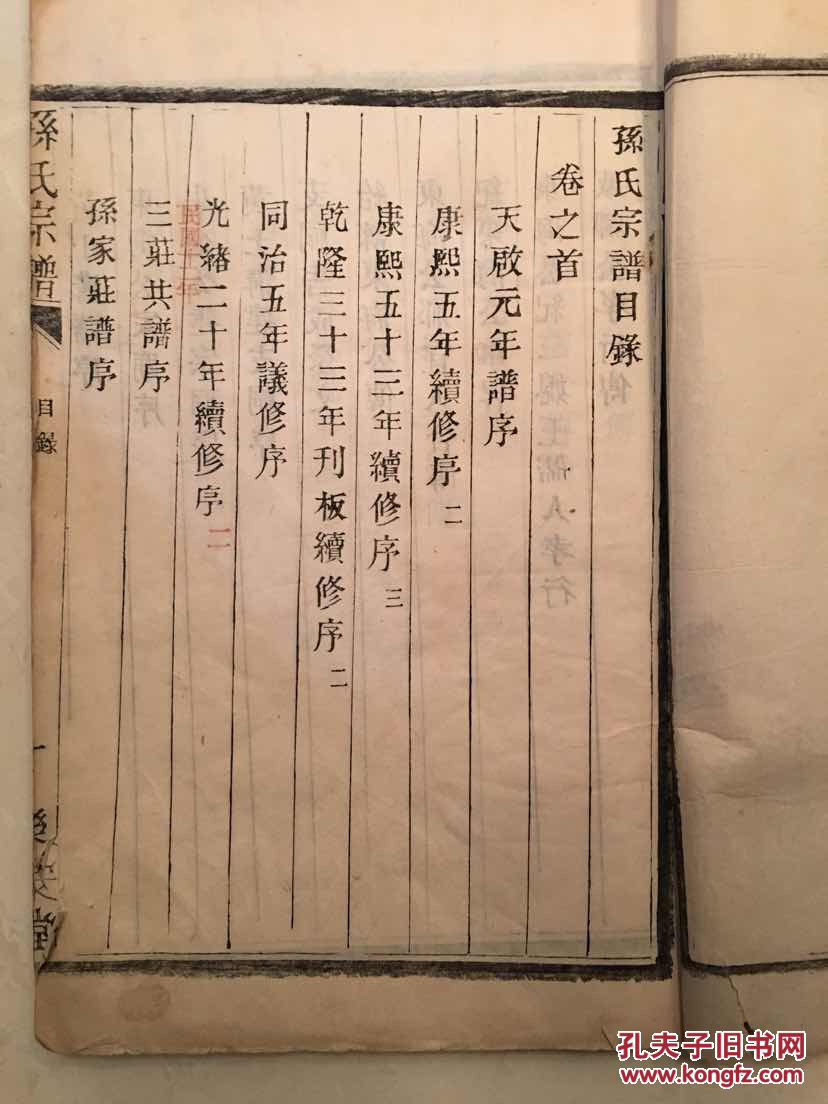 孫氏宗譜目錄
卷之首
天啟元年譜序
康熙五年續修序 二
康熙五十三年續修序 三
乾隆三十三年刊板續修序 二
同治五年議修序
光緒二十年續修序 二
三莊共譜序
孫家莊譜序
孫氏宗譜
目錄
一
堂
孔夫子旧书网
www.kongfz.com